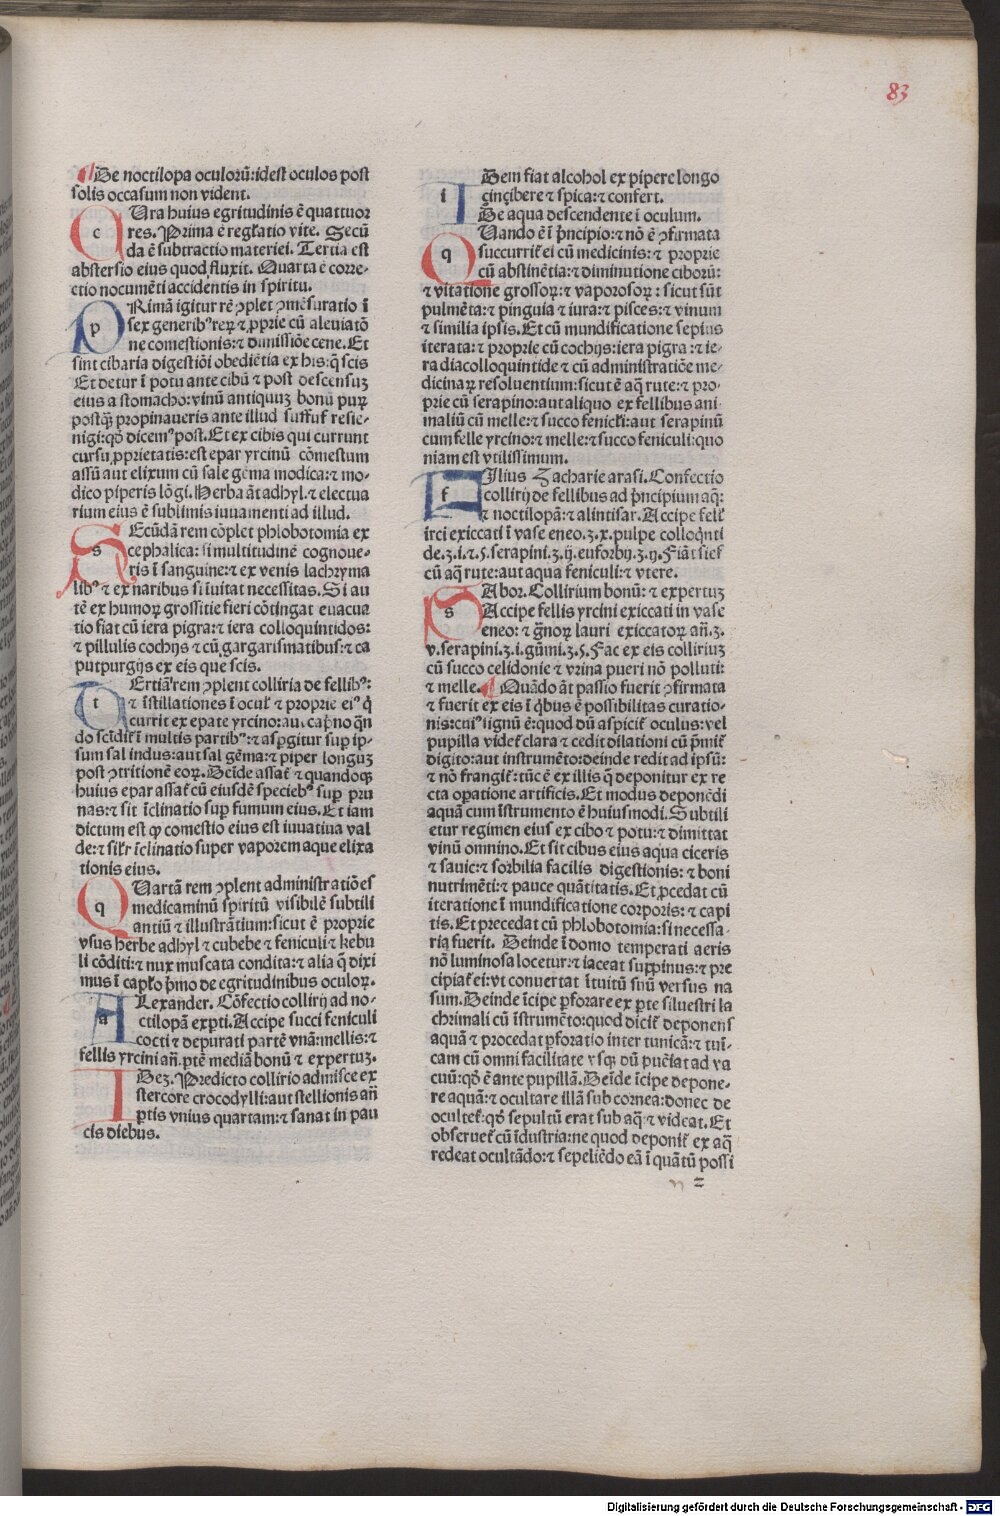 83
De noctilopa oculorū: idest oculos post
solis occasum non vident.
c Ura huius egritudinis ē quattuor
res. Prima ē regl̄atio vite. Secū
da ē subtractio materiei. Tertia est
abstersio eius quod fluxit. Quarta ē corre-
ctio nocumēti accidentis in spiritu.
p Rimā igitur rē ꝯplet ꝯmēsuratio ī
sex generibꝰ reꝝ ⁊ ꝓprie cū aleuiatō
ne comestionis: ⁊ dimissiōe cene. Et
sint cibaria digestiōi obediētia ex his: q̄ scis
Et detur ī potu ante cibū ⁊ post descensuꝫ
eius a stomacho: vinū antiquuꝫ bonū puꝝ
postqꝫ propinaueris ante illud suffuf resie-
nigi: qď dicemꝰ post. Et ex cibis qui currunt
cursu ꝓprietatis: est epar yrcinū cōmestum
assū aut elixum cū sale gēma modica: ⁊ mo-
dico piperis lōgi. Herba āt adhyl. ⁊ electua
rium eius ē sublimis iuuamenti ad illud.
s Ecūdā rem cōplet phlobotomia ex
cephalica: si multitudinē cognoue-
ris ī sanguine: ⁊ ex venis lachryma
libꝰ ⁊ ex naribus si īuitat necessitas. Si au
tē ex humoꝝ grossitie fieri cōtingat euacua
tio fiat cū iera pigra: ⁊ iera colloquintidos:
⁊ pillulis cochijs ⁊ cū gargarismatibus: ⁊ ca
putpurgijs ex eis que scis.
t Ertiā rem ꝯplent colliria de fellibꝰ:
⁊ īstillationes ī ocul̄ ⁊ proprie eiꝰ q̄
currit ex epate yrcino: aut caprino qn̄
do scīdit̄ ī multis partibꝰ: ⁊ aspgitur sup ip-
sum sal indus: aut sal gēma: ⁊ piper longuꝫ
post ꝯtritionē eoꝝ. Deīde assat̄ ⁊ quandoqꝫ
huius epar assat̄ cū eiusdē speciebꝰ sup̄ pru
nas: ⁊ sit īclinatio sup̄ fumum eius. Et iam
dictum est ꝙ comestio eius est iuuatiua val
de: ⁊ sil̄r īclinatio super vaporem aque elixa
tionis eius.
q Uartā rem ꝯplent administratiōes
medicaminū spiritū visibilē subtili
antiū ⁊ illustrātium: sicut ē proprie
vsus herbe adhyl ⁊ cubebe ⁊ feniculi ⁊ kebu
li cōditi: ⁊ nux muscata condita: ⁊ alia q̄ dixi
mus ī capl̄o p̄mo de egritudinibus oculoꝝ.
a Lexander. Cōfectio collirij ad no-
ctilopā expti. Accipe succi feniculi
cocti ⁊ depurati partē vnā: mellis: ⁊
fellis yrcini an̄. ptē mediā bonū ⁊ expertuꝫ.
I Dez. Predicto collirio admisce ex
stercore crocodylli: aut stellionis an̄
ptis vnius quartam: ⁊ sanat in pau
cis diebus.
i Dem fiat alcohol ex pipere longo
çinçibere ⁊ spica: ⁊ confert.
De aqua descendente ī oculum.
q Uando ē ī p̄ncipio: ⁊ nō ē ꝯfirmata
succurrit̄ ei cū medicinis: ⁊ proprie
cū abstinētia: ⁊ diminutione ciborū:
⁊ vitatione grossoꝝ: ⁊ vaporosoꝝ: sicut sūt
pulmēta: ⁊ pinguia ⁊ iura: ⁊ pisces: ⁊ vinum
⁊ similia ipsis. Et cū mundificatione sepius
iterata: ⁊ proprie cū cochijs: iera pigra: ⁊ ie-
ra diacolloquintide ⁊ cū administratiōe me-
dicinaꝝ resoluentium: sicut ē aq̄ rute: ⁊ pro-
prie cū serapino: aut aliquo ex fellibus ani-
maliū cū melle: ⁊ succo feniculi: aut serapinū
cum felle yrcino: ⁊ melle: ⁊ succo feniculi: quo
niam est vtilissimum.
f Ilius Zacharie arasi. Confectio
collirij de fellibus ad p̄ncipium aq̄:
⁊ noctilopā: ⁊ alintisar. Accipe fell̄
irci exiccati ī vase eneo. ʒ. x. pulpe colloqn̄ti
de. ʒ. i. ⁊. s. serapini. ʒ. ij. euforbij. ʒ. ij. Fiāt sief
cū aq̄ rute: aut aqua feniculi: ⁊ vtere.
s Abor. Collirium bonū: ⁊ expertuꝫ
Accipe fellis yrcini exiccati in vase
eneo: ⁊ gr̄noꝝ lauri exiccatoꝝ an̄. ʒ.
v. serapini. ʒ. i. gūmi. ʒ. s. Fac ex eis colliriuꝫ
cū succo celidonie ⁊ vrina pueri nō polluti:
⁊ melle. Quādo āt passio fuerit ꝯfirmata
⁊ fuerit ex eis ī qbus ē possibilitas curatio-
nis: cuiꝰ signū ē: quod dū aspicit̄ oculus: vel
pupilla videt̄ clara ⁊ cedit dilationi cū p̄mit̄
digito: aut instrumēto: deinde redit ad ipsū:
⁊ nō frangit̄: tūc ē ex illis q̄ deponitur ex re
cta opatione artificis. Et modus deponēdi
aquā cum īstrumento ē huiusmodi. Subtili
etur regimen eius ex cibo ⁊ potu: ⁊ dimittat
vinū omnino. Et sit cibus eius aqua ciceris
⁊ sauic: ⁊ sorbilia facilis digestionis: ⁊ boni
nutrimēti: ⁊ pauce quātitatis. Et ꝓcedat cū
iteratione ī mundificatione corporis: ⁊ capi
tis. Et precedat cū phlobotomia: si necessa-
ria fuerit. Deinde ī domo temperati aeris
nō luminosa locetur: ⁊ iaceat suppinus: ⁊ pre
cipiat̄ ei: vt conuertat ītuitū suū versus na
sum. Deinde īcipe pforare ex pte siluestri la
chrimali cū īstrumēto: quod dicit̄ deponens
aquā ⁊ procedat pforatio inter tunicā: ⁊ tui-
cam cū omni facilitate vsqꝫ dū puēiat ad va
cuū: qď ē ante pupillā. Deīde īcipe depone-
re aquā: ⁊ ocultare illā sub cornea: donec de
ocultet̄: qď sepultū erat sub aq̄ ⁊ videat. Et
obseruet̄ cū īdustria: ne quod deponit̄ ex aq̄
redeat ocultādo: ⁊ sepeliēdo eā ī quātū possi
n =
Digitalisierung gefördert durch die Deutsche Forschungsgemeinschaft - DFG